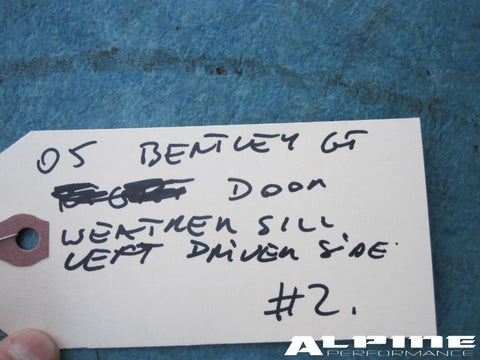 05 BENTLEY GT
DOOR
WEATHER SILL
LEFT DRIVER SIDE.
#2.
ALPINE
PERFORMANCE